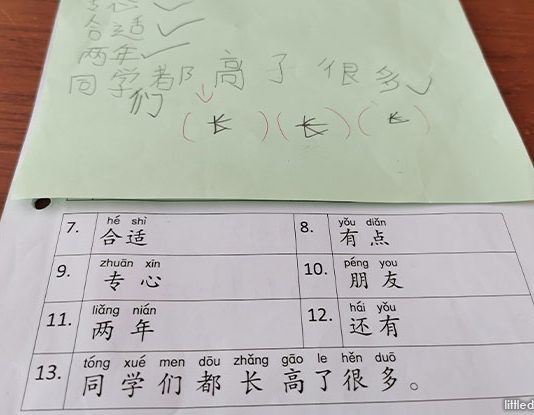 专心 ✓
合适 ✓
两年 ✓
同学都高了很多 ✓
们
(长)(长)(长)
7. hé shì 合适
8. yǒu diǎn 有点
9. zhuān xīn 专心
10. péng you 朋友
11. liǎng nián 两年
12. hái yǒu 还有
13. tóng xué men dōu zhǎng gāo le hěn duō
同学们都长高了很多。
littled